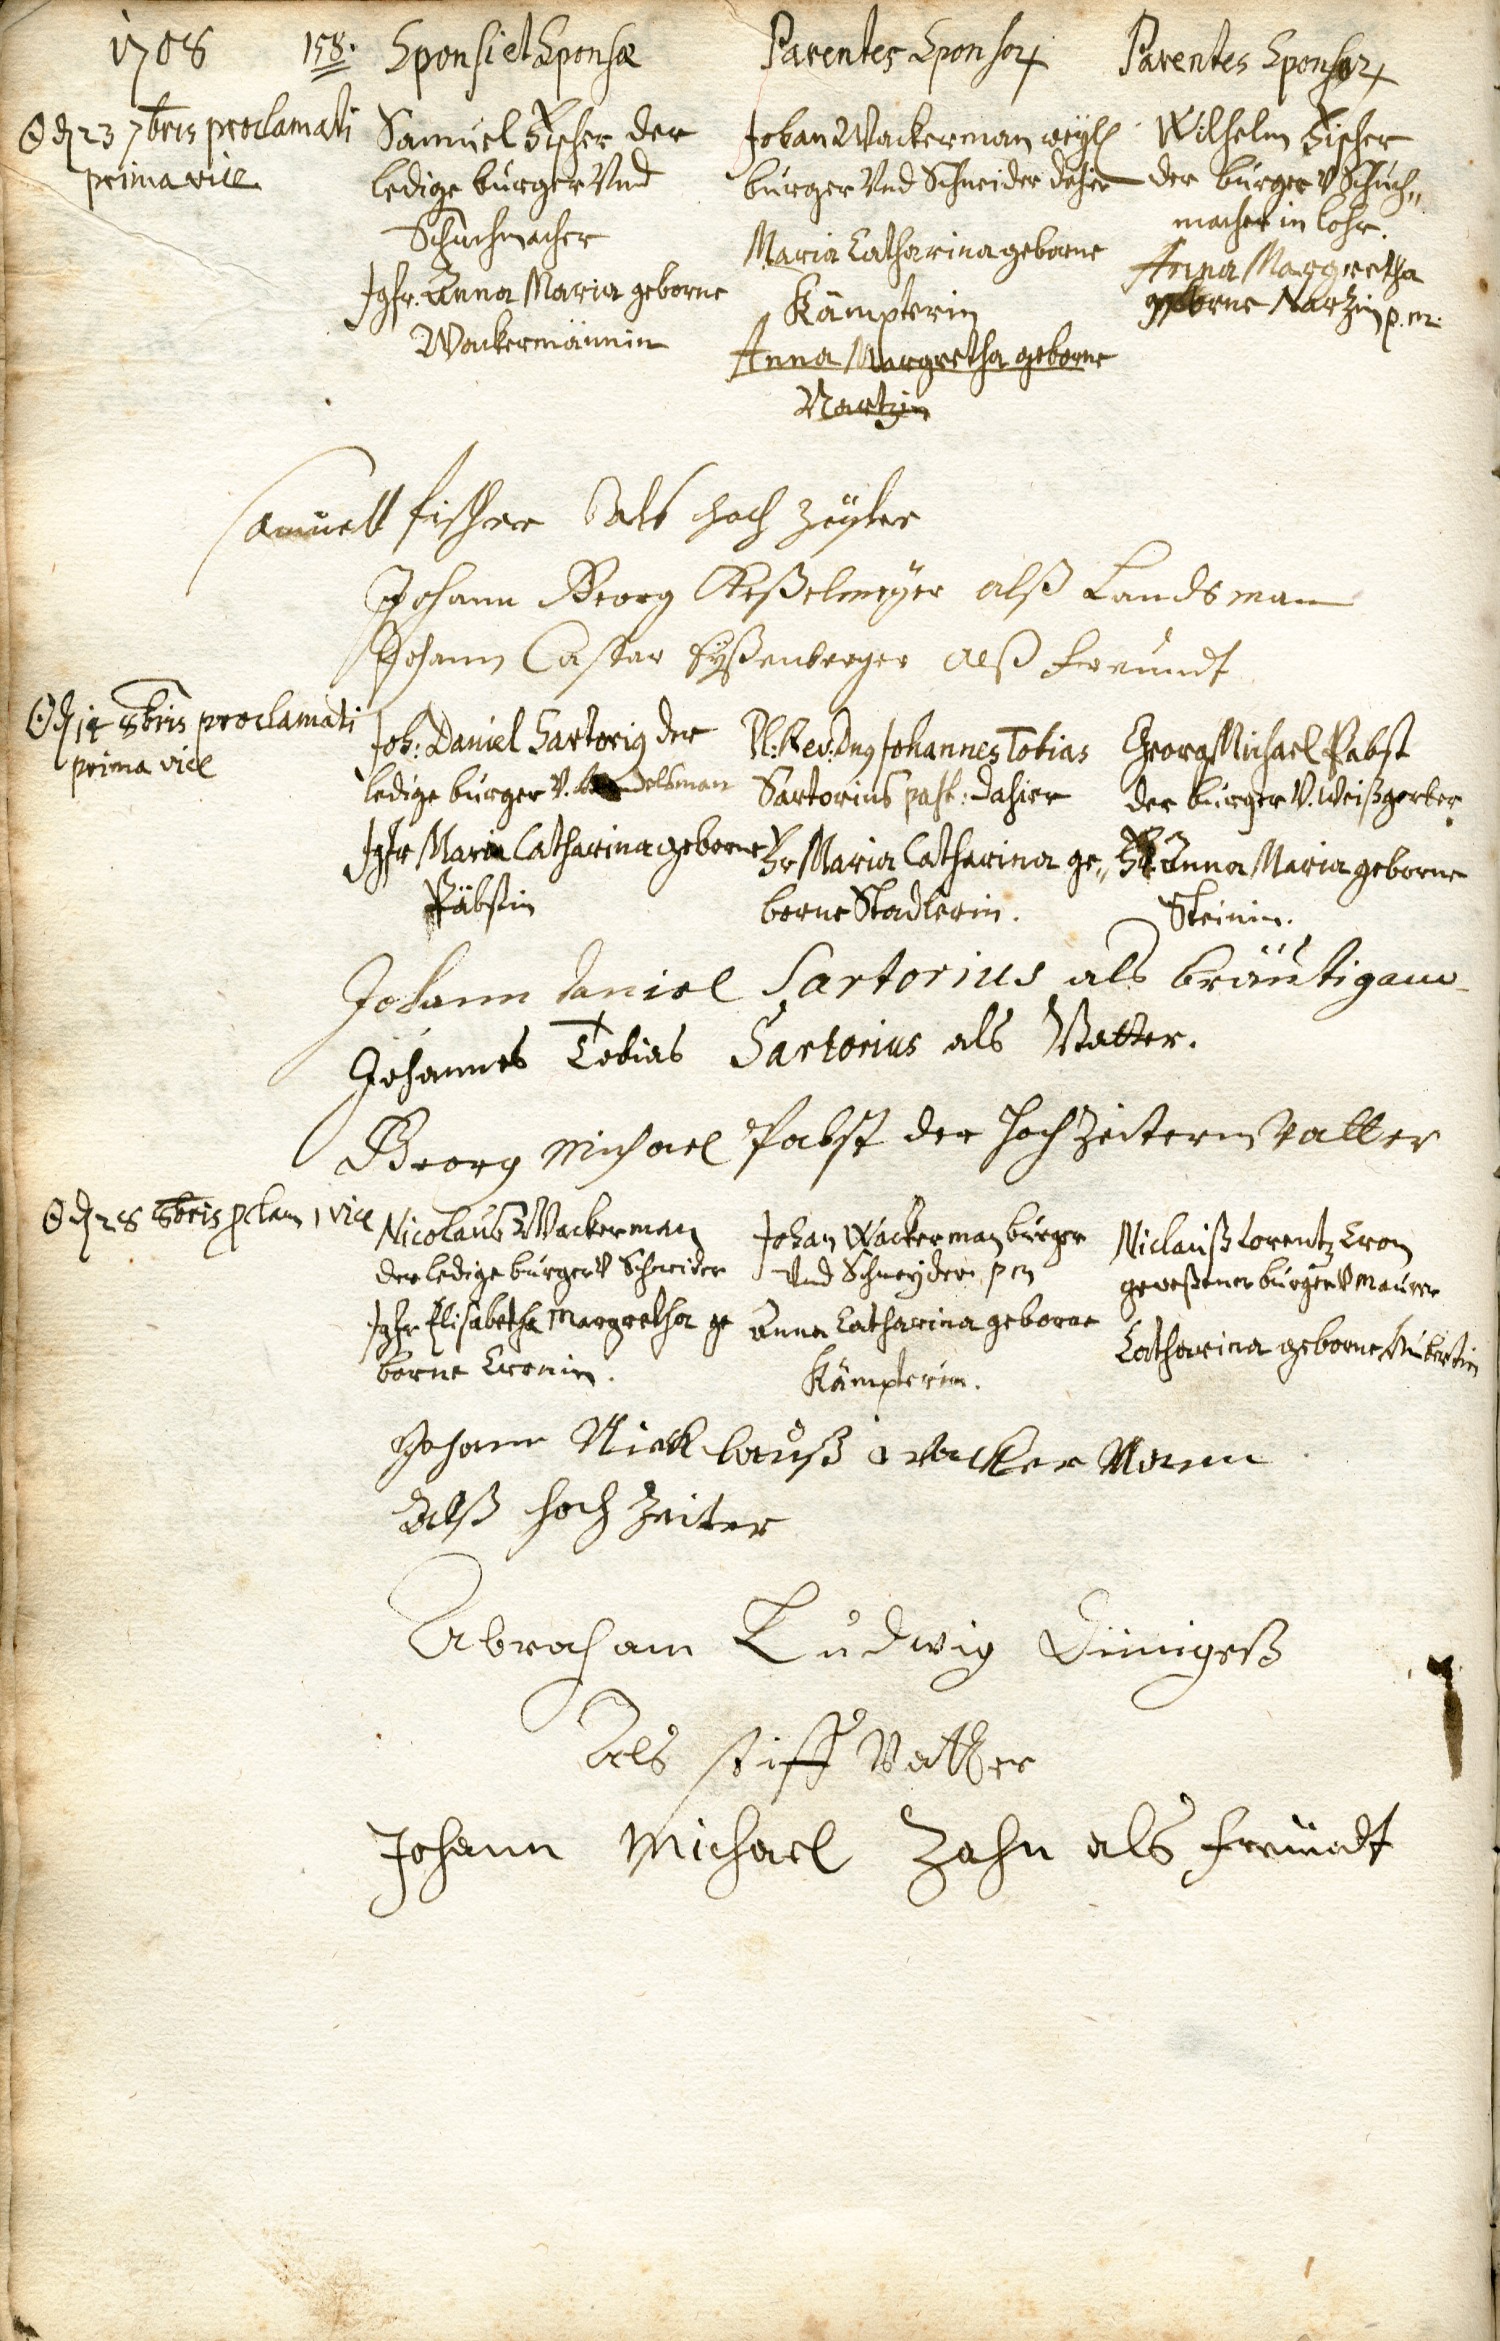 1708
158.
Sponsi et Sponsæ
Parentes Sponsor
Parentes Sponsar
23 7bris proclamati
prima vice
Samuel Fischer der
ledige burger Vnd
Schuchmacher
Jgfr. Anna Maria geborne
Wackermännin
Johan Wackerman weyl
burger Vnd Schneider dahier
Maria Catharina geborne
Kämpterin
Anna Margretha geborne
Nartzin
Wilhelm Fischer
der burger V Schuch„
macher in lohr.
Anna Margretha
geborne Narzin p.m.
Samuell fischer als hoch zeyter
Johann Georg Keßelmeyer alß Landsman
Johann Castar Eyßenberger alß freundt
14 8bris proclamati
prima vice
Joh: Daniel Sartorig der
ledige burger V. delsman
Jgfr Maria Catharina geborne
Päbstin
Pl: Rev: Dng Johannes Tobias
Sartorius past: dahier
Fr Maria Catharina ge„
borne Stadlerin.
Georg Michael Pabst
der burger V. Weißgerber
Fr Anna Maria geborne
Steinin.
Johann Daniel Sartorius als bräutigam
Johannes Tobias Sartorius als Vatter.
Georg Michael Pabst der Hochzeiterin Vatter
28 8bris pclam 1 vice
Nicolaus Wackerman
der ledige burger V Schneider
Jgfr Elisabetha Margretha ge
borne Cronin.
Johan Wackerman burger
Vnd Schneyder p m
Anna Catharina geborne
Kämpterin.
Niclauß Lorentz Cron
geweßener burger V maurer
Catharina geborne
Johann Nicklauß wacker Mann
Alß hoch Zeiter
Abraham Ludwig
Als stiff Vatter
Johann Michael Zahn als freundt